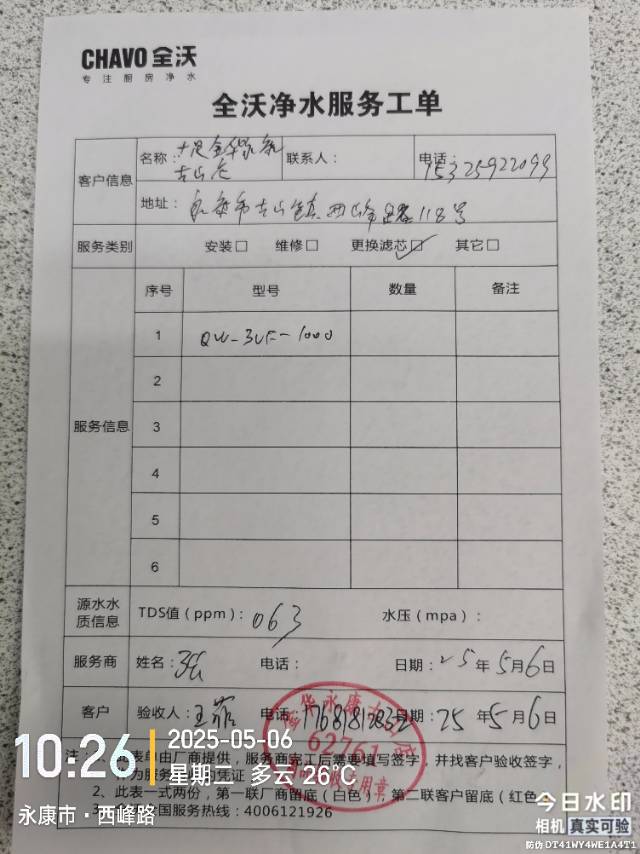 CHAVO 全沃
专注厨房净水
全沃净水服务工单
客户信息
名称：
古山店
联系人：
电话：15325922099
地址：永康市古山镇西峰路118号
服务类别 安装□ 维修□ 更换滤芯☑ 其它□
服务信息
序号 型号 数量 备注
1 QW-3UF-1000
2
3
4
5
6
源水水质信息 TDS值（ppm）：063 水压（mpa）：
服务商 姓名：张 电话： 日期：25年5月6日
客户 验收人：王 电话： 日期：25年5月6日
62761
用章
表单由厂商提供，服务商完工后需要填写签字，并找客户验收签字，
为服务 凭证
2、此表一式两份，第一联厂商留底（白色），第二联客户留底（红色
国服务热线：4006121926
10:26
2025-05-06
星期二 多云 26℃
永康市·西峰路
今日水印
相机 真实可验
防伪 DT41WY4WE1A4T1